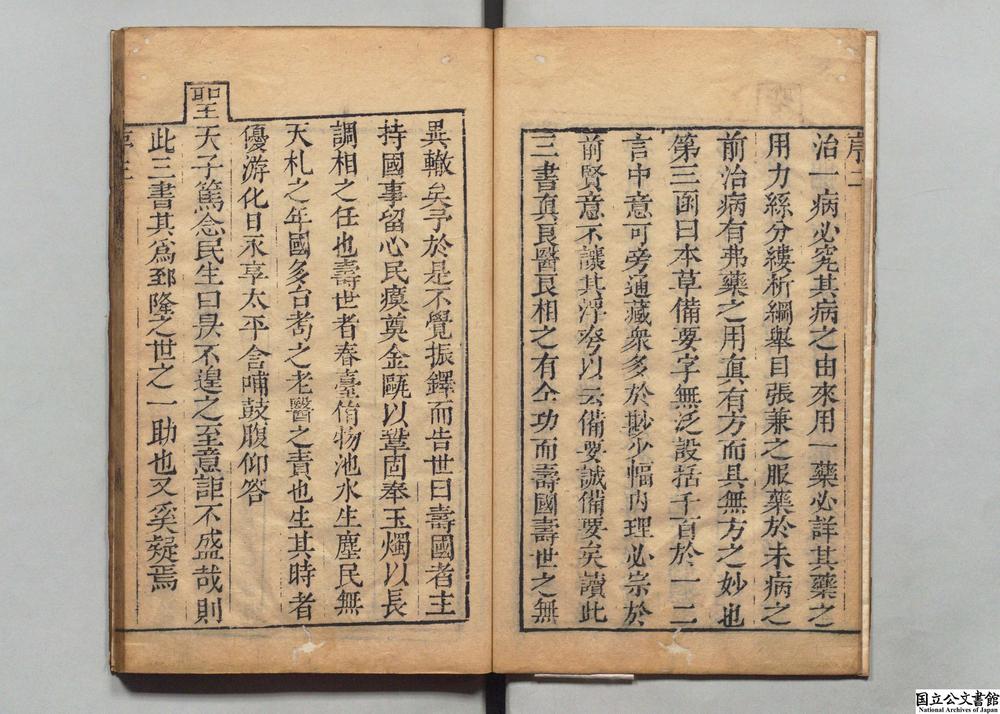 序二
治一病必究其病之由來用一藥必詳其藥之
用力絲分縷析綱舉目張兼之服藥於未病之
前治病有弗藥之用眞有方而具無方之妙也
第三函曰本草備要字無泛設括千百於一二
言中意可旁通藏衆多於尠少幅內理必宗於
前賢意不讓其浮夸以云備要誠備要矣讀此
三書眞良醫良相之有仝功而壽國壽世之無
異轍矣予於是不覺振鐸而告世曰壽國者主
持國事留心民瘼奠金甌以鞏固奉玉燭以長
調相之任也壽世者春臺脩物池水生塵民無
夭札之年國多台耇之老醫之責也生其時者
優游化日永享太平含哺鼓腹仰答
聖天子篤念民生日昃不遑之至意詎不盛哉則
此三書其爲郅隆之世之一助也又奚疑焉
序三
国立公文書館
National Archives of Japan